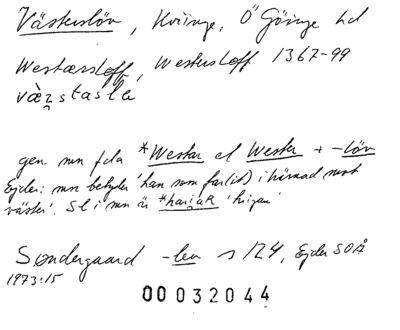 Västerslöv, Kviinge, Ö Göinge hd
Westæsloff, Westersloff 1367-99
væ̀ʐstaslɐ
gen mn fda *Westar el Wester + -löv
Ejder: mn betyder 'han som far(it) i härnad mot
väster'. Sl i mn är *harjaR 'krigare'
Søndergaard -lev s 124, Ejder SOÅ
1973:15
00032044